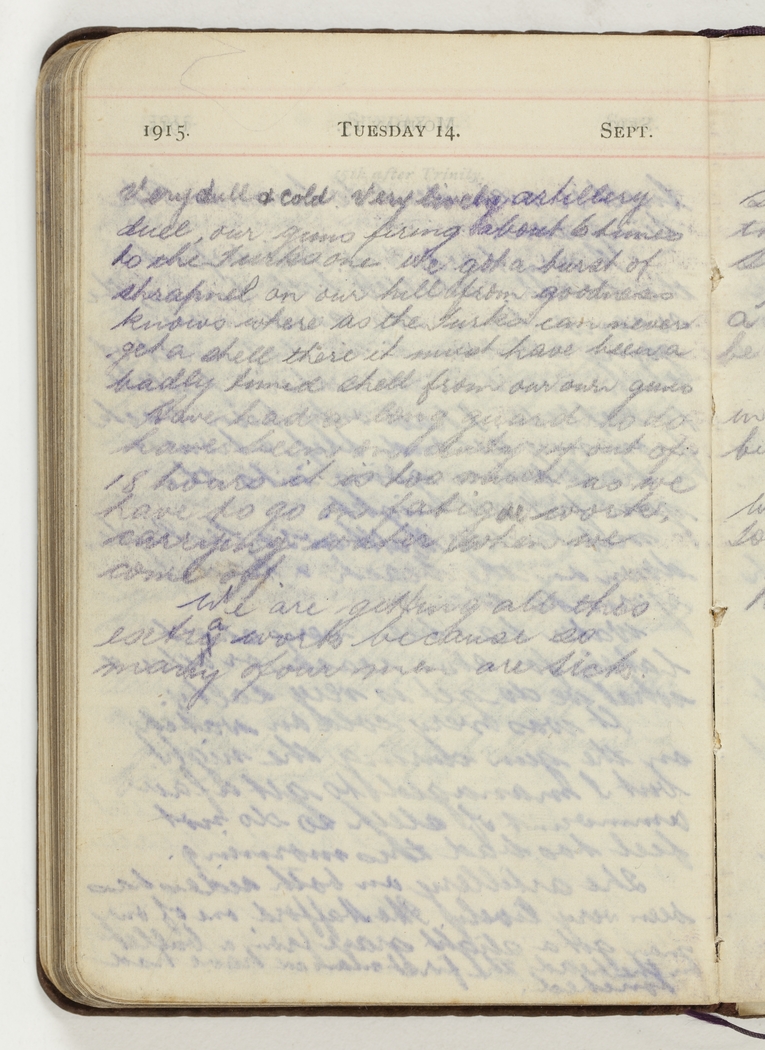 1915. TUESDAY 14. SEPT.
Very dull & cold. Very lively artillery
duel, our guns firing about 6 times
to the Turks one we got a burst of
shrapnel on our hill from goodness
knows where as the Turks can never
get a shell there it must have been a
badly timed shell from our own guns
Have had a long guard to do
have been on duty out of
18 hours it is too much as we
have to go on fatigue work,
carrying water when we
come off
We are getting all this
extra work because so
many of our men are sick.